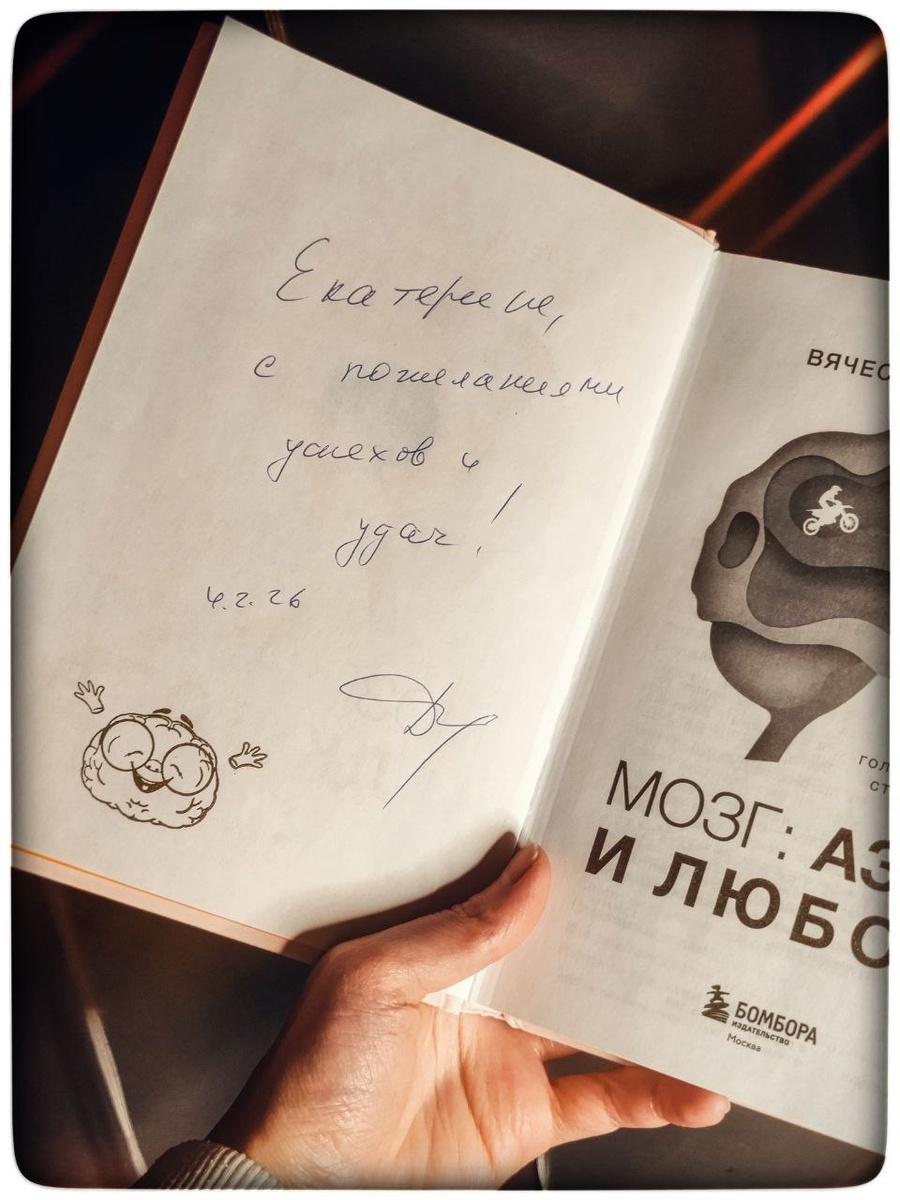 Екатерине,
с пожеланиями
успехов и
удач!
4.2.26
ВЯЧЕС
ГОЛ
СТ
МОЗГ: АЗ
И ЛЮБО
БОМБОРА
ИЗДАТЕЛЬСТВО
Москва